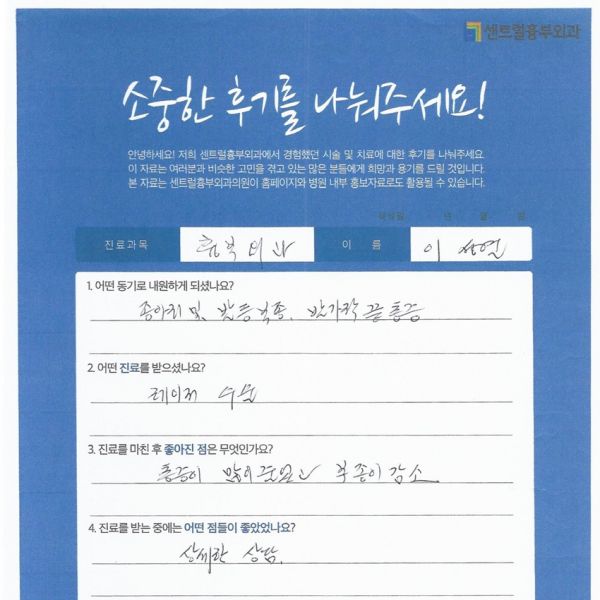 센트럴흉부외과
소중한 후기를 나눠주세요!
안녕하세요! 저희 센트럴흉부외과에서 경험했던 시술 및 치료에 대한 후기를 나눠주세요.
이 자료는 여러분과 비슷한 고민을 겪고 있는 많은 분들에게 희망과 용기를 드릴 것입니다.
본 자료는 센트럴흉부외과의원이 홈페이지와 병원 내부 홍보자료로도 활용될 수 있습니다.
년 월 일
진료과목 흉부외과 이 름 이
1. 어떤 동기로 내원하게 되셨나요?
종아리 및 발등 부종. 발가락 끝 통증
2. 어떤 진료를 받으셨나요?
레이저 수술
3. 진료를 마친 후 좋아진 점은 무엇인가요?
통증이 많이 줄었고 부종이 감소
4. 진료를 받는 중에는 어떤 점들이 좋았었나요?
상세한 상담.